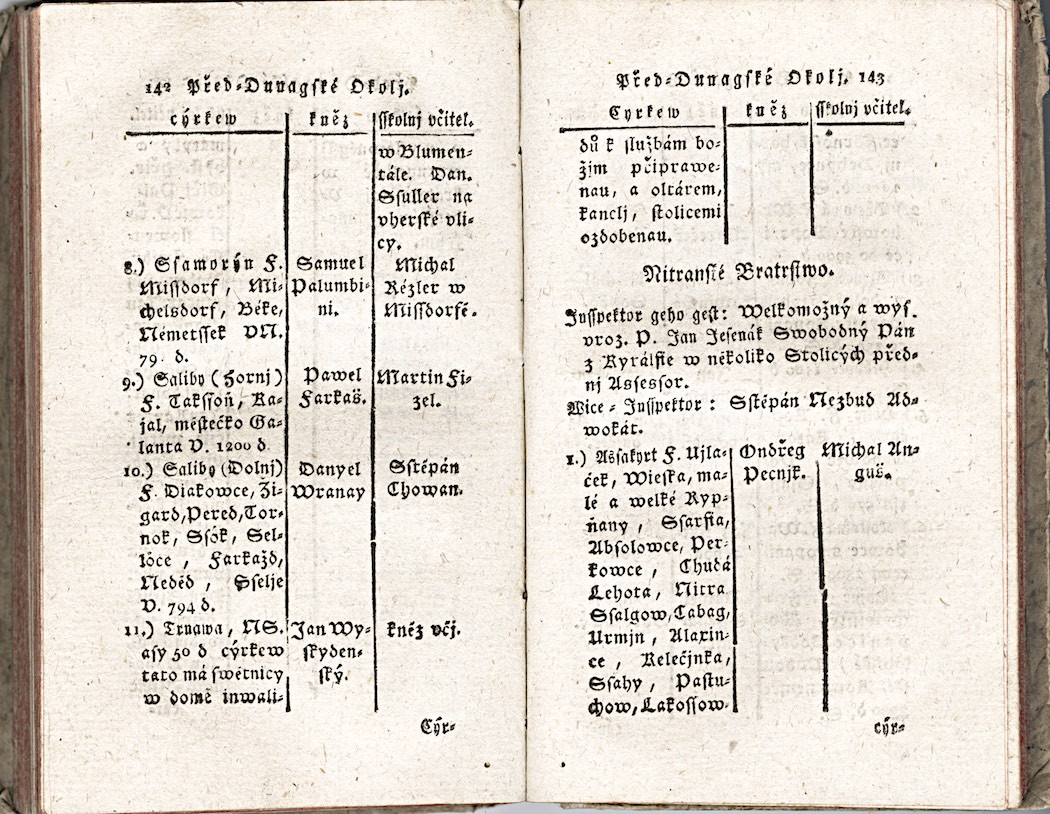 142 Před-Dunagské Okolj.
cýrkew kněz sskolnj včitel.
w Blumen-
tále. Dan.
Ssuller na
vherské vli-
cy.
8.) Ssamorýn F.
Missdorf, Mi-
chelsdorf, Béke,
Németssek VN.
79. d.
Samuel
Palumbi-
ni.
Michal
Rézler w
Missdorfé.
9.) Saliby (Hornj)
F. Taksson, Ka-
jal, městečko Ga-
lanta V. 1200 d.
Pawel
Farkaš.
Martin Fi-
zel.
10.) Saliby (Dolnj)
F. Diakowce, Ži-
gard, Pered, Tor-
nok, Ssók, Sel-
lóce, Farkažd,
Neděd, Sselje
V. 794 d.
Danyel
Wranay
Sstěpán
Chowan.
11.) Trnawa, NS.
asy 50 d cýrkew
tato má swětnicy
w domě inwali-
Jan Wy-
skyden-
ský.
kněz věj.
Cýr-
Před-Dunagské Okolj. 143
Cyrkew kněz sskolnj včitel.
dů k službám bo-
žjm připrawe-
nau, a oltárem,
kanclj, stolicemi
ozdobenau.
Nitranské Bratrstwo.
Inspektor geho gest: Welkomožný a wys.
vroz. P. Jan Jesenák Swobodný Pán
z Kyrálfie w několiko Stolicých před-
nj Assessor.
Wice-Inspektor: Sstěpán Nezbud Ad-
wokát.
1.) Assakyrt F. Ujla-
ček, Wieska, ma-
lé a welké Ryp-
ňany, Ssarfia,
Absolowce, Per-
kowce, Chudá
Lehota, Nitra
Ssalgow, Cabag,
Urmjn, Alaxin-
ce, Kelečjnka,
Ssahy, Pastu-
chow, Lakossow-
Ondřeg
Pecnjk.
Michal An-
guš.
cýr-